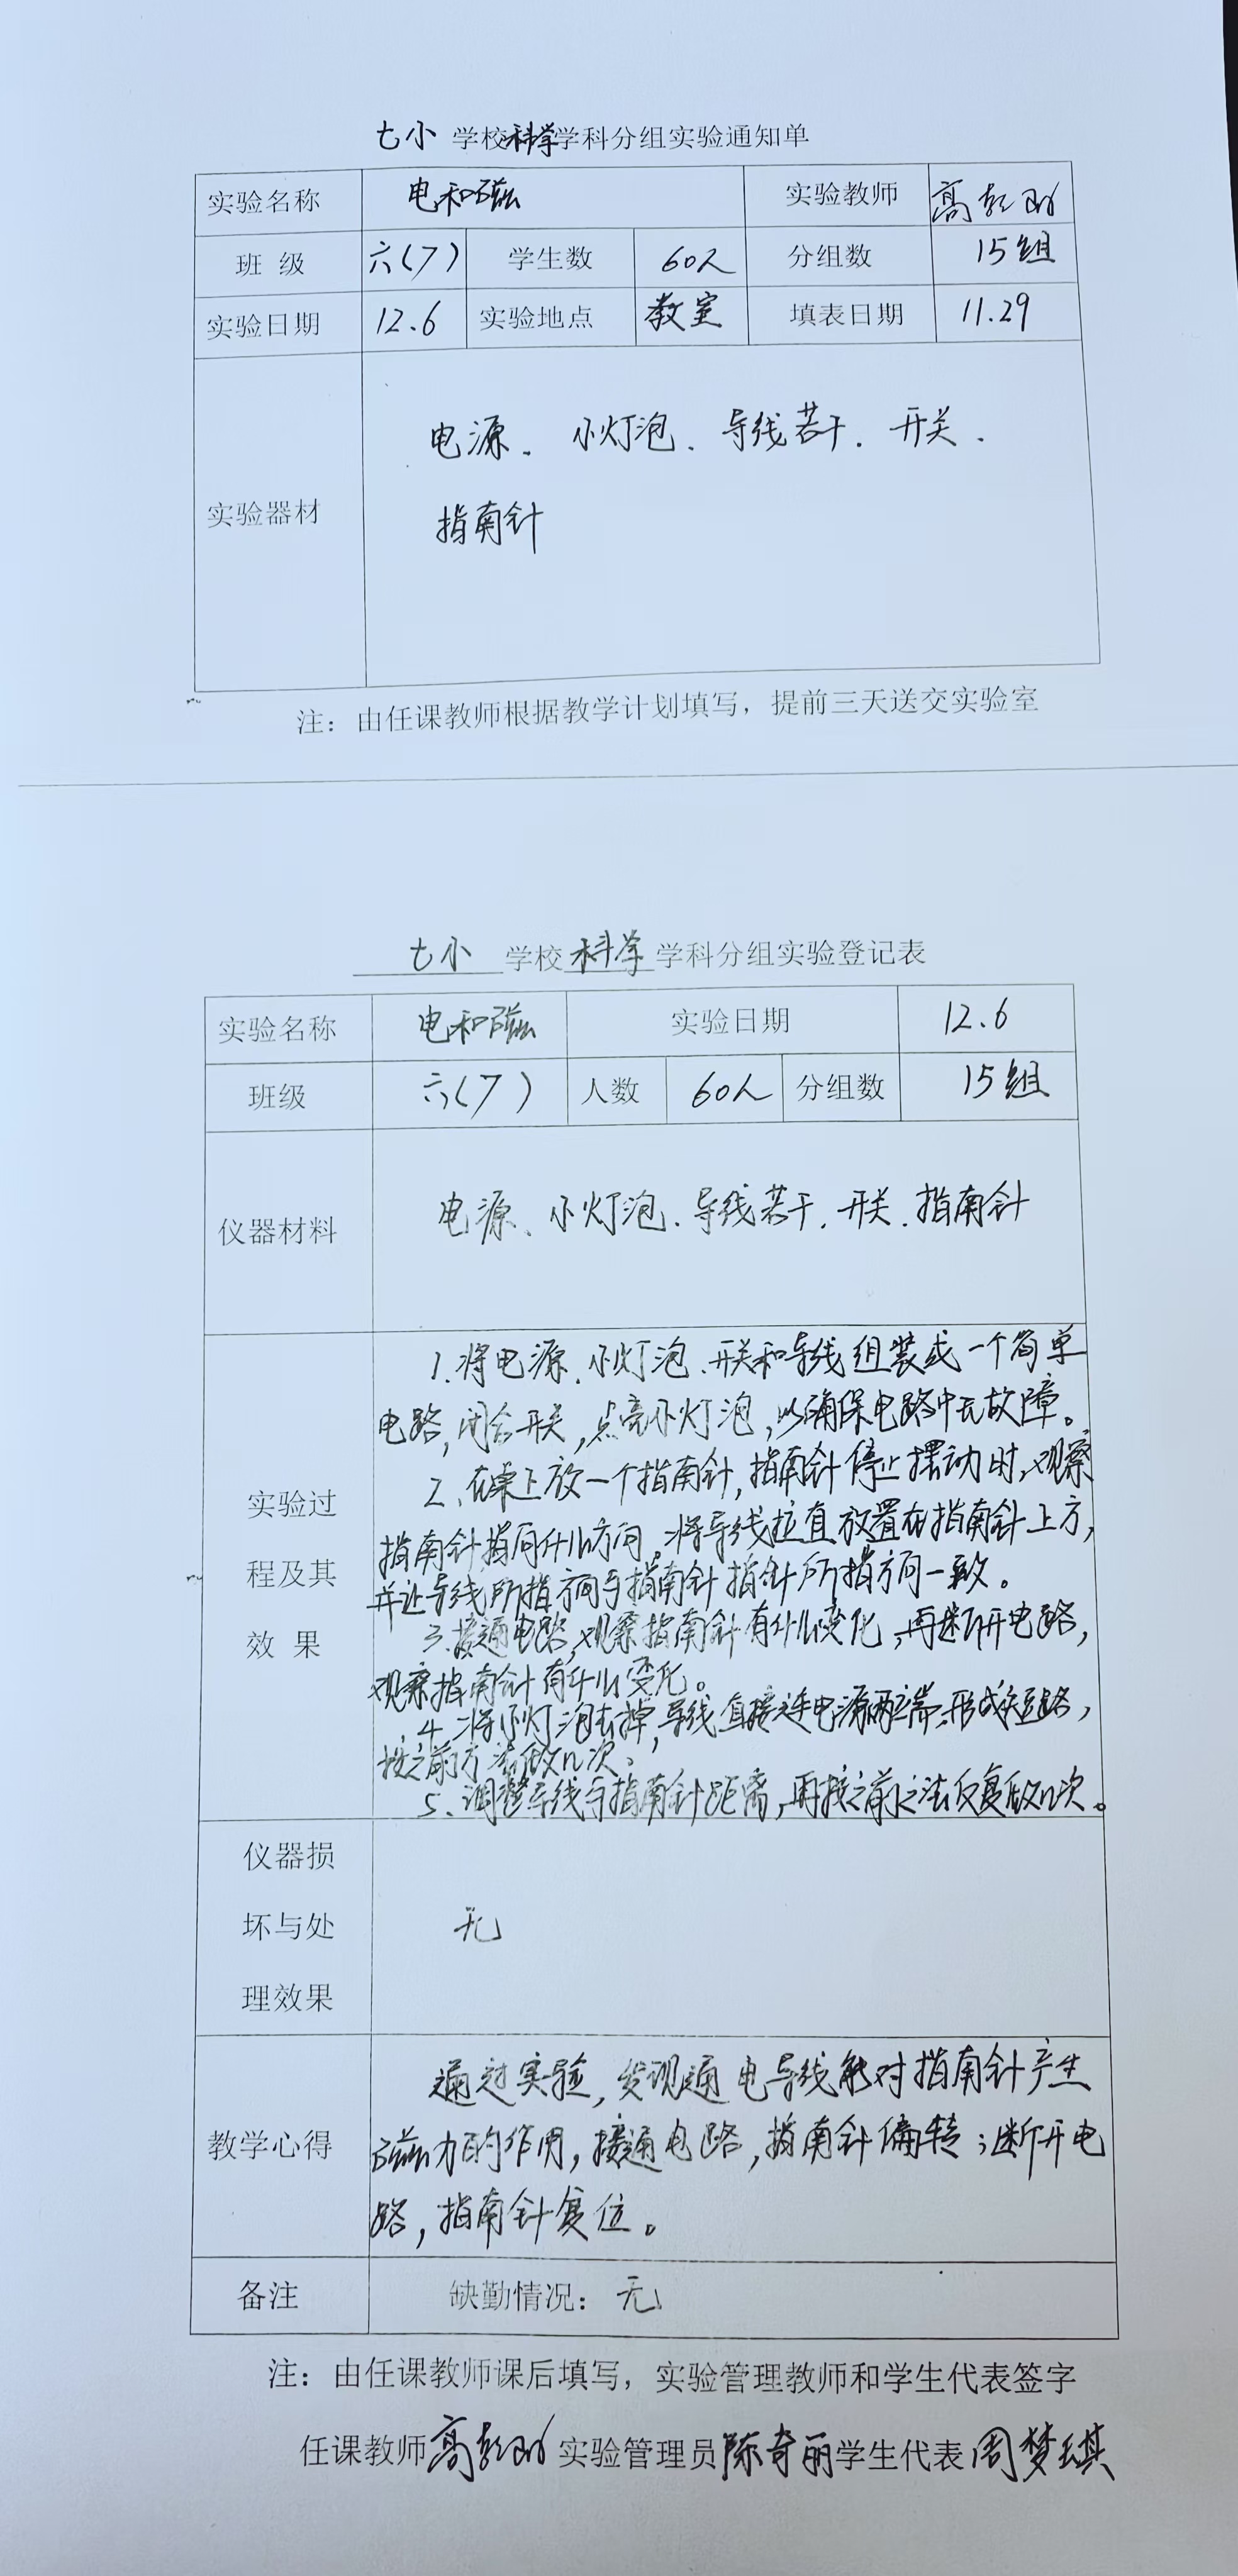 七小 学校科学学科分组实验通知单
实验名称 电和磁 实验教师 高
班 级 六(7) 学生数 60人 分组数 15组
实验日期 12.6 实验地点 教室 填表日期 11.29
电源、小灯泡、导线若干、开关、
实验器材
指南针
注：由任课教师根据教学计划填写，提前三天送交实验室
七小 学校 科学 学科分组实验登记表
实验名称 电和磁 实验日期 12.6
班级 六(7) 人数 60人 分组数 15组
仪器材料 电源、小灯泡、导线若干、开关、指南针
实验过
程及其
效 果
1.将电源、小灯泡、开关和导线组装成一个简单
电路,闭合开关,点亮小灯泡,以确保电路中无故障。
2、在桌上放一个指南针,指南针停止摆动时,观察
指南针指向什么方向,将导线拉直放置在指南针上方,
并让导线所指方向与指南针指针所指方向一致。
3.接通电路,观察指南针有什么变化,再断开电路,
观察指南针有什么变化。
4.将小灯泡去掉,导线直接连电源两端,形成短路,
按之前方法做几次。
5、调整导线与指南针距离,再按之前之法反复做几次。
仪器损
坏与处
理效果
无
教学心得
通过实验,发现通电导线能对指南针产生
磁力的作用,接通电路,指南针偏转;断开电
路,指南针复位。
备注 缺勤情况：无
注：由任课教师课后填写，实验管理教师和学生代表签字
任课教师高 实验管理员陈奇丽学生代表周梦琪